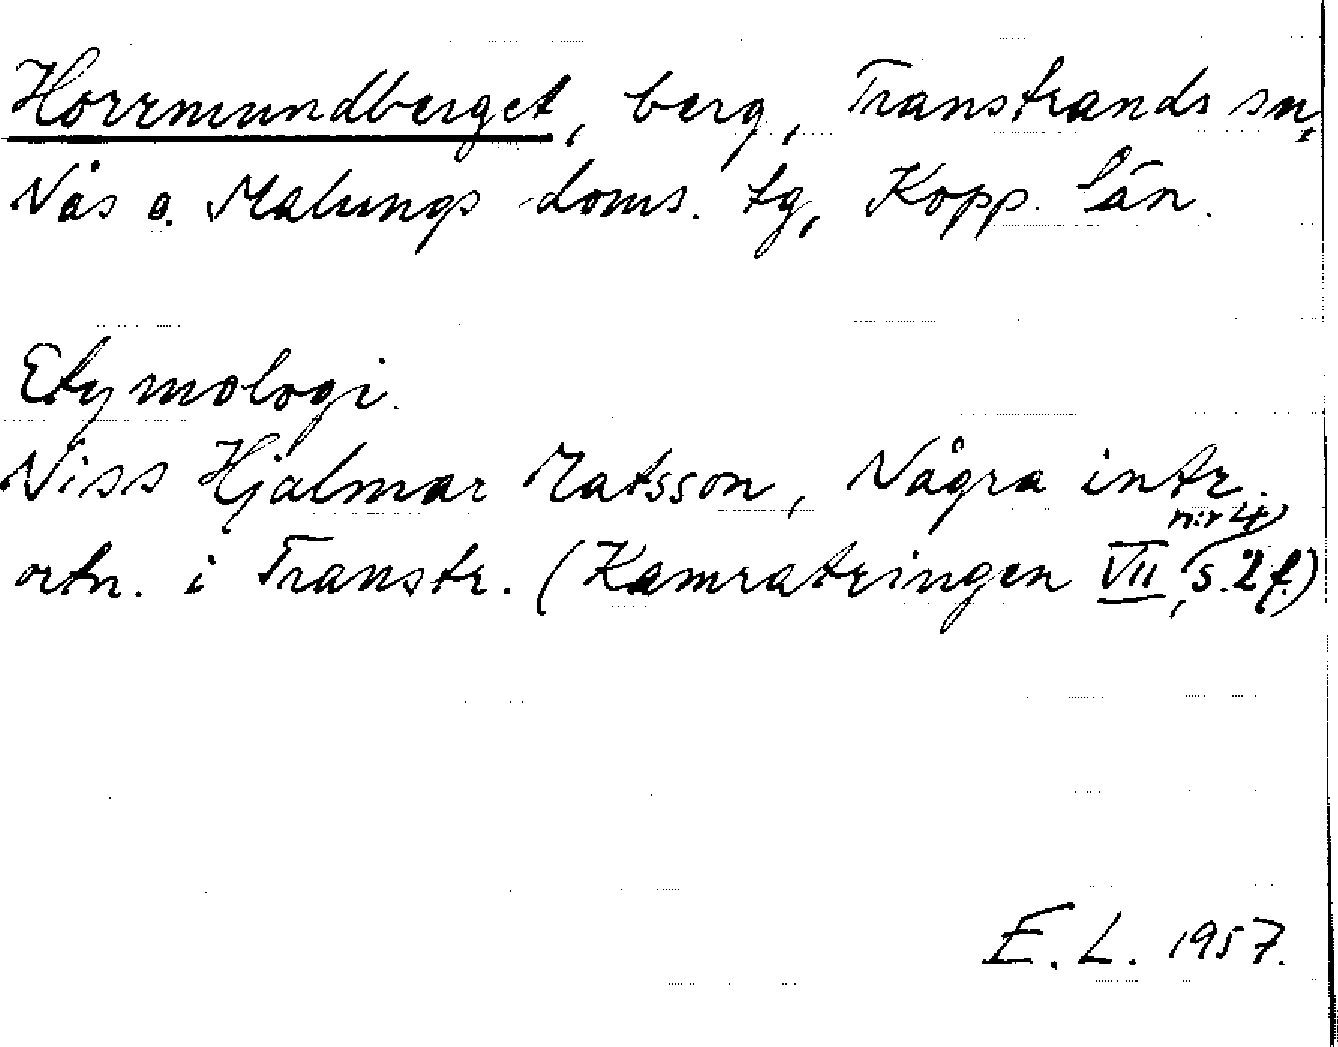 Horrmundberget, berg, Transtrands sn,
Nås o. Malungs doms. tg, Kopp. län.
Etymologi.
Niss Hjalmar Matsson, Några intr.
ortn. i Transtr. (Kamratringen VII, n:r 4, s. 2 f.)
E. L. 1957.